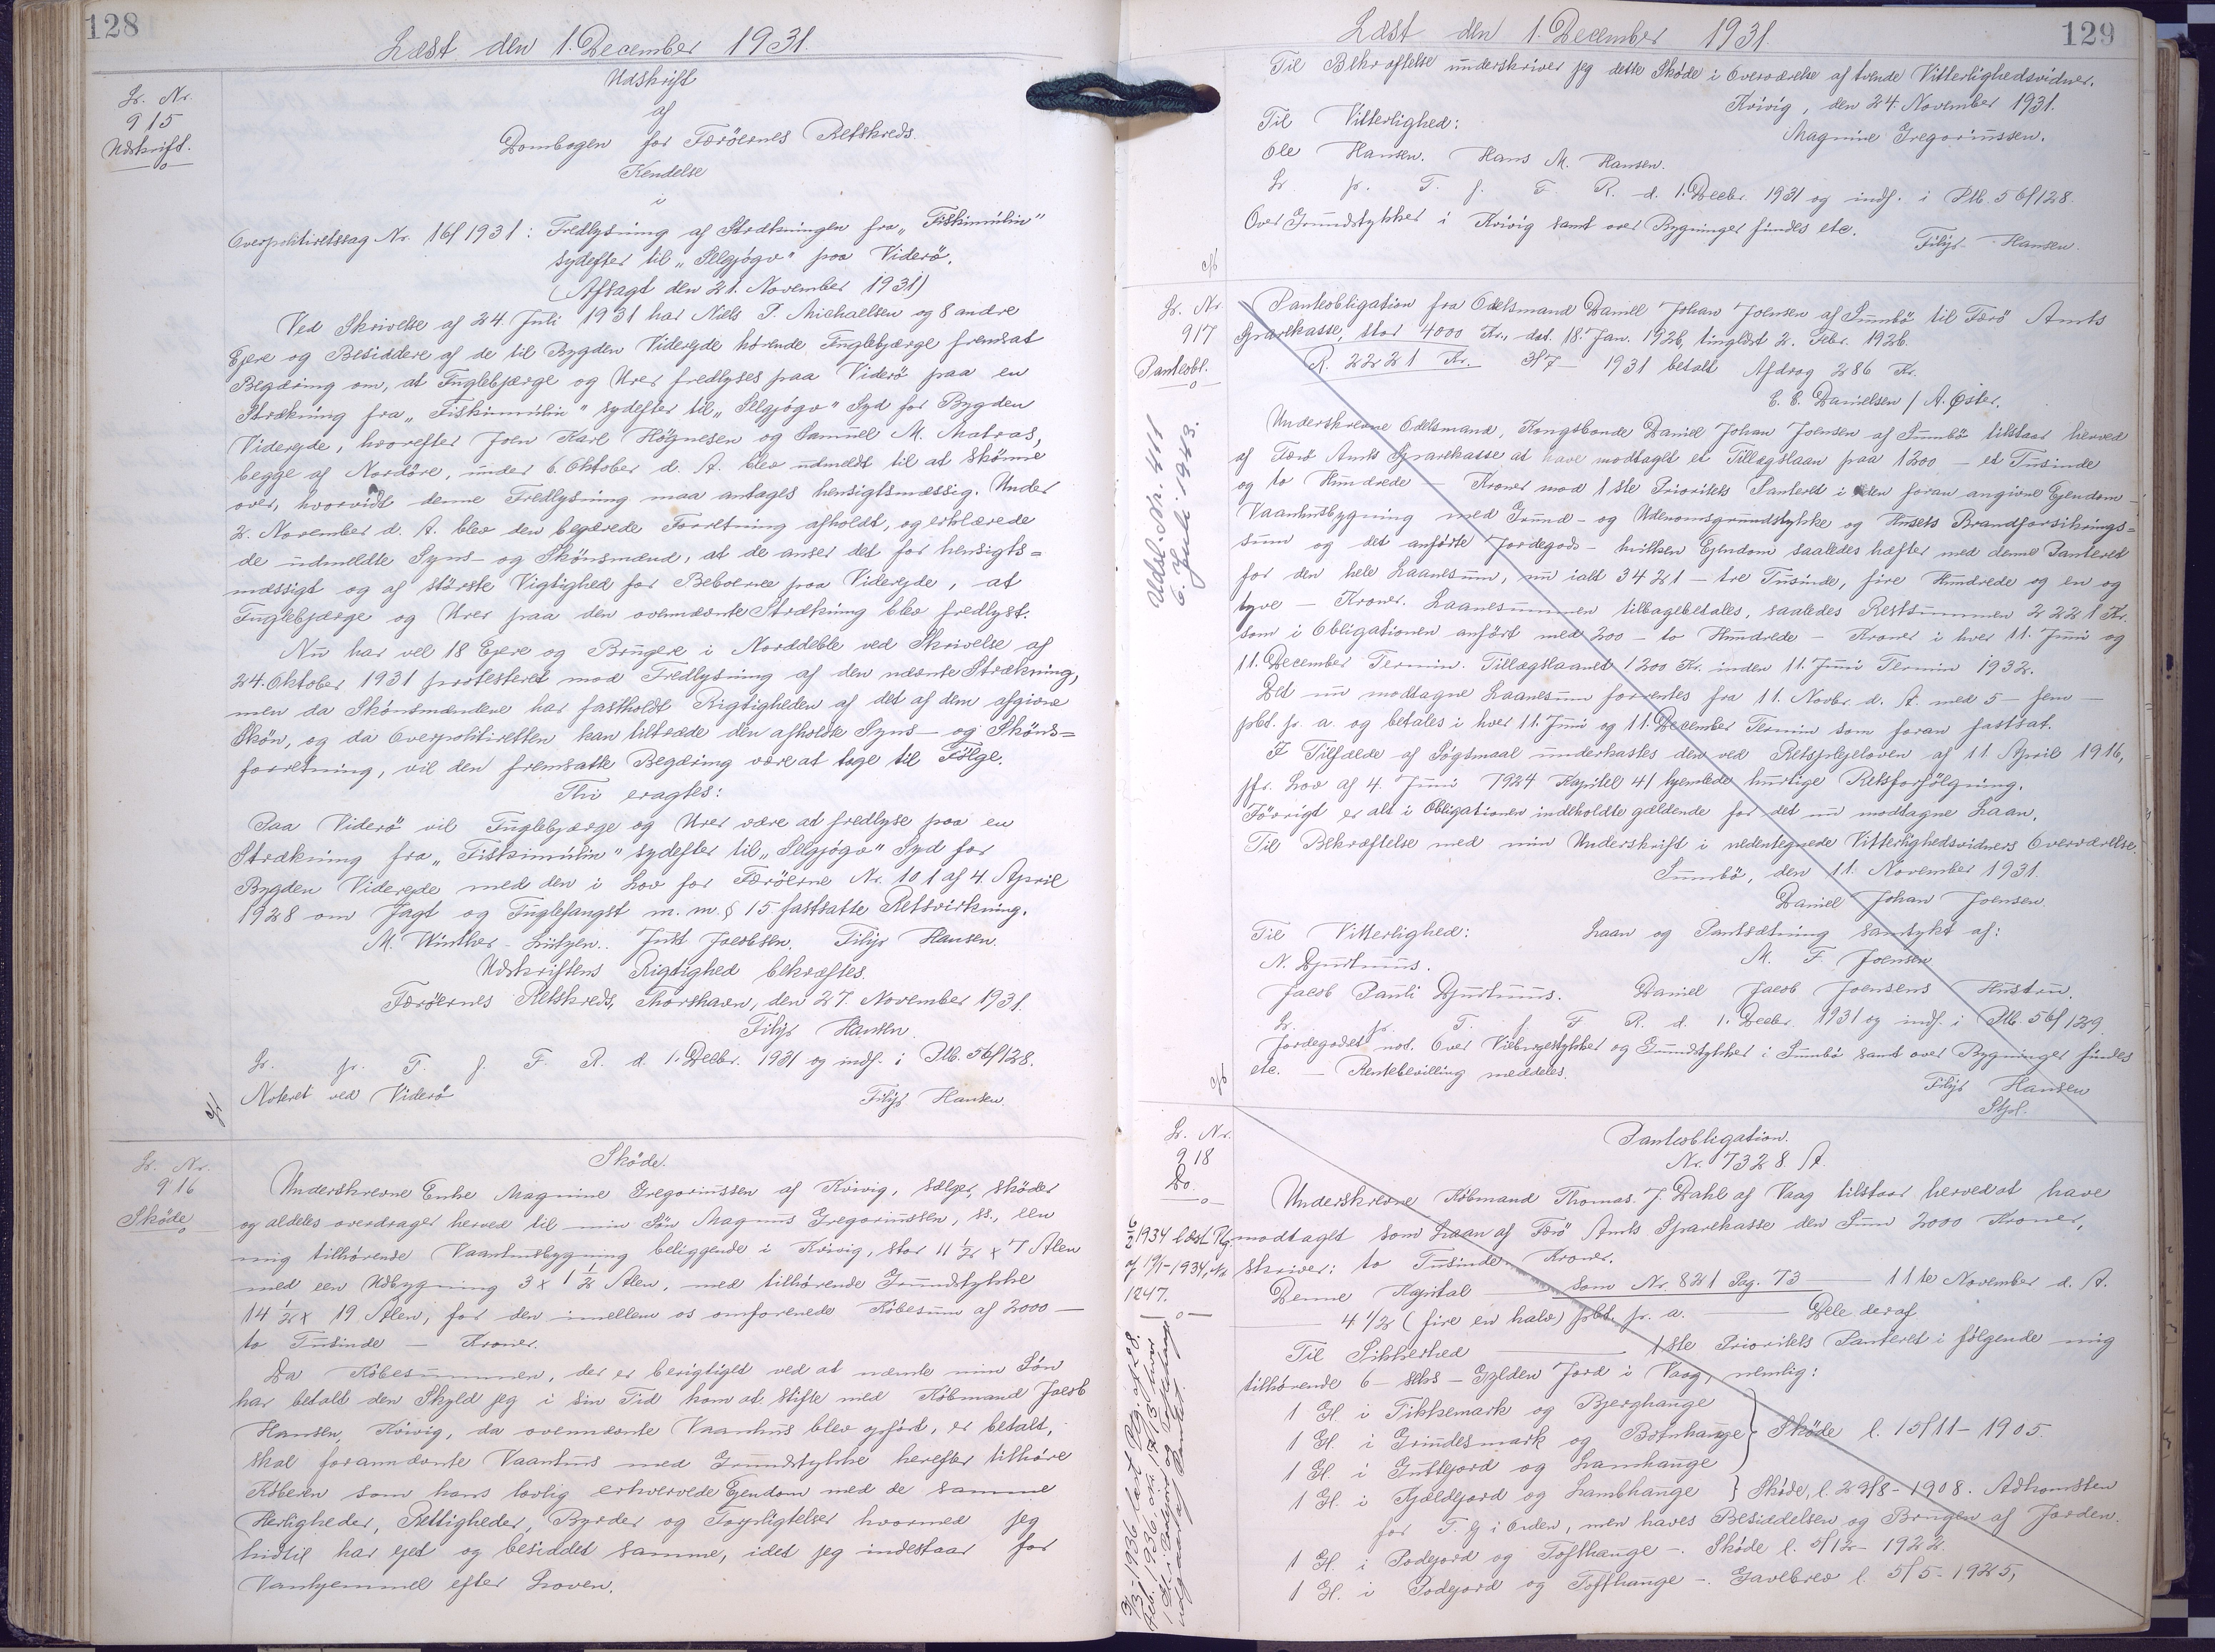 128
Læst den 1. December 1931.
Lr. Nr.
915
Udskrift.
Udskrift
af
Dombogen for Færöernes Retskreds.
Kendelse
i
Overpolitiretssag Nr. 16/1931: Fredlysning af Strækningen fra „Fiskimúlin"
sydefter til „Selgjógv" paa Viderö.
(Afsagt den 21. November 1931)
Ved Skrivelse af 24. Juli 1931 har Niels P. Michaelsen og 8 andre
Ejere og Besiddere af de til Bygden Viderejde hörende Fuglebjærge fremsat
Begæring om, at Fuglebjærge og Urer fredlyses paa Viderö paa en
Strækning fra „Fiskimúlin" sydefter til „Selgjógv" Syd for Bygden
Viderejde, hvorefter Joen Karl Högnesen og Samuel M. Matras,
begge af Nordöre, under 6. Oktober d. A. blev udmeldt til at skönne
over, hvorvidt denne Fredlysning maa antages hensigtsmæssig. Under
2. November d. A. blev den begærede Forretning afholdt, og erklærede
de udmeldte Syns- og Skönsmænd, at de anser det for hensigts=
mæssigt og af störste Vigtighed for Beboerne paa Viderejde, at
Fuglebjærge og Urer paa den ovennævnte Strækning blev fredlyst.
Nu har vel 18 Ejere og Brugere i Norddeble ved Skrivelse af
24. Oktober 1931 protesteret mod Fredlysning af den nævnte Strækning,
men da Skönsmændene har fastholdt Rigtigheden af det af dem afgivne
Skön, og da Overpolitiretten kan tiltræde den afholdte Syns- og Sköns=
forretning, vil den fremsatte Begæring være at tage til Fölge.
Thi eragtes:
Paa Viderö vil Fuglebjærge og Urer være at fredlyse paa en
Strækning fra „Fiskimúlin" sydefter til „Selgjógv" Syd for
Bygden Viderejde med den i Lov for Færöerne Nr. 101 af 4. April
1928 om Jagt og Fuglefangst m. m. § 15 fastsatte Retsvirkning.
M. Winther-Lützen. Just Jacobsen. Filip Hansen.
Udskriftens Rigtighed bekræftes.
Færöernes Retskreds, Thorshavn, den 27. November 1931.
Filip Hansen.
Lr. pr. T. f. F. R. d. 1. Decbr. 1931 og indf. i Ptb. 56/128.
Noteret ved Viderö
Filip Hansen.
Lr. Nr.
916
Sköde
Sköde.
Underskrevne Enke Magnine Gregoriussen af Kvivig, sælger, sköder
og aldeles overdrager herved til min Sön Magnus Gregoriussen, ss., een
mig tilhörende Vaanhusbygning beliggende i Kvivig, stor 11 1/2 x 7 Alen
med een Udbygning 3 x 1 1/2 Alen, med tilhörende Grundstykke
14 1/2 x 19 Alen, for den imellem os omforenede Köbesum af 2000 —
to Tusinde — Kroner.
Da Köbesummen, der er berigtiget ved at nævnte min Sön
har betalt den Skyld jeg i sin Tid kom at stifte med Köbmand Jacob
Hansen, Kvivig, da ovennævnte Vaanhus blev opfört, er betalt,
skal forannævnte Vaanhus med Grundstykke herefter tilhöre
Köberen som hans lovlig erhvervede Ejendom med de samme
Herligheder, Rettigheder, Byrder og Forpligtelser hvormed jeg
hidtil har ejet og besiddet samme, idet jeg indestaar for
Vanhjemmel efter Loven.
129
Læst den 1. December 1931.
Til Bekræftelse underskriver jeg dette Sköde i Overværelse af tvende Vitterlighedsvidner.
Kvivig, den 24. November 1931.
Til Vitterlighed:
Magnine Gregoriussen.
Ole Hansen. Hans M. Hansen.
Lr. pr. T. f. F. R. d. 1. Decbr. 1931 og indf. i Ptb. 56/128.
Over Grundstykker i Kvivig samt over Bygninger findes etc.
Filip Hansen.
Lr. Nr.
917
Panteobl.
Udsl. Nr. 411
6. Juli 1943.
Panteobligation fra Odelsmand Daniel Johan Joensen af Sumbö til Færö Amts
Sparekasse, stor 4000 Kr., dat. 18. Jan. 1926, tinglæst 2. Febr. 1926.
R. 2221 Kr. 3/7 - 1931 betalt Afdrag 286 Kr.
E. E. Danielsen / A. Öster.
Underskrevne Odelsmand, Kongsbonde Daniel Johan Joensen af Sumbö tilstaar herved
af Færö Amts Sparekasse at have modtaget et Tillægslaan paa 1200 — et Tusinde
og to Hundrede — Kroner mod 1ste Prioritets Panteret i den foran angivne Ejendom -
Vaanhusbygning med Grund- og Udenomsgrundstykke og Husets Brandforsikrings=
sum og det anförte Jordegods - hvilken Ejendom saaledes hæfter med denne Panteret
for den hele Laanesum, nu ialt 3421 — tre Tusinde, fire Hundrede og en og
tyve — Kroner. Laanesummen tilbagebetales, saaledes Restsummen 2221 Kr.
som i Obligationen anfört med 200 — to Hundrede — Kroner i hver 11. Juni og
11. December Termin. Tillægslaanet 1200 Kr. inden 11. Juni Termin 1932.
Det nu modtagne Laanesum forrentes fra 11. Novbr. d. A. med 5 — fem —
pCt. pr. a. og betales i hver 11. Juni og 11. December Termin som foran fastsat.
I Tilfælde af Sögsmaal underkastes den ved Retsplejeloven af 11. April 1916,
jfr. Lov af 4. Juni 1924 Kapitel 41 hjemlede hurtige Retsforfölgning.
Iövrigt er alt i Obligationen indeholdte gældende for det nu modtagne Laan.
Til Bekræftelse med min Underskrift i nedentegnede Vitterlighedsvidners Overværelse.
Sumbö, den 11. November 1931.
Daniel Johan Joensen.
Til Vitterlighed:
Laan og Pantsætning samtykt af:
N. Djurhuus.
M. F. Joensen
Jacob Pauli Djurhuus.
Daniel Jacob Joensens Hustru.
Lr. pr. T. f. F. R. d. 1. Decbr. 1931 og indf. i Ptb. 56/129.
Jordegodset not. Over Vielsegestykker og Grundstykker i Sumbö samt over Bygninger findes
etc. — Rentebevilling meddeles.
Filip Hansen
Stpl.
Lr. Nr.
918
Do.
6/2 1934 læst Plg.
af 19/1-1934, Nr.
1247.
Panteobligation.
Nr. 7328. A.
Underskrevne Köbmand Thomas J. Dahl af Vaag tilstaar herved at have
modtaget som Laan af Færö Amts Sparekasse den Sum 2000 Kroner,
skriver: to Tusinde Kroner.
Denne Kapital — som Nr. 821 Pag. 73 — 11te November d. A.
— 4 1/2 (fire en halv) pCt. pr. a. — Dele deraf
Til Sikkerhed — 1ste Prioritets Panteret i fölgende mig
tilhörende 6 - seks - Gylden Jord i Vaag, nemlig:
1 Gl. i Tikkemark og Bjerghauge
1 Gl. i Grindesmark og Botnhauge } Sköde l. 15/11-1905.
1 Gl. i Gutlejord og Lamhauge
1 Gl. i Kjældejord og Lambhauge } Sköde, l. 29/8-1908. Adkomsten
for T. G i Orden, men haves Besiddelsen og Brugen af Jorden.
1 Gl. i Podejord og Tofthauge -. Sköde l. 5/12-1922.
1 Gl. i Podejord og Tofthauge -. Gavebrev l. 5/5-1925,